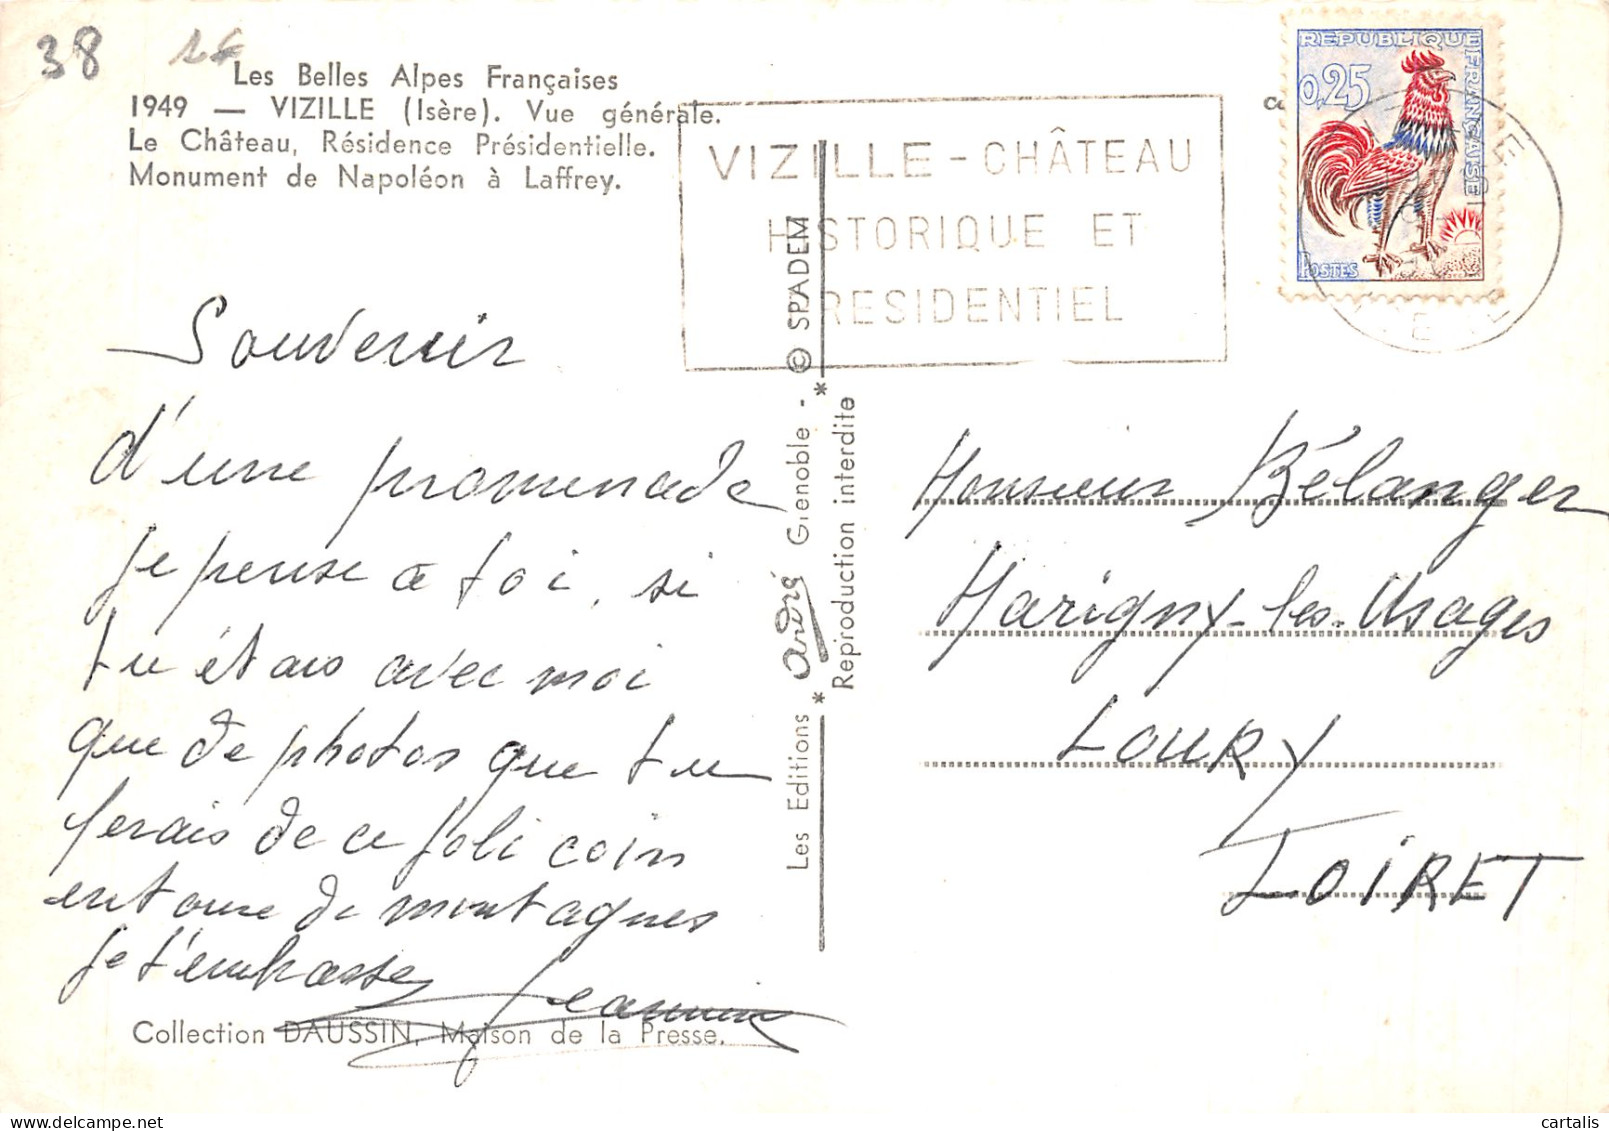 38 1€
Les Belles Alpes Françaises
1949 — VIZILLE (Isère). Vue générale.
Le Château, Résidence Présidentielle.
Monument de Napoléon à Laffrey.
VIZILLE - CHÂTEAU
HISTORIQUE ET
RESIDENTIEL
REPUBLIQUE FRANÇAISE
0,25
POSTES
Souvenir
d'une promenade
je pense à toi, si
tu étais avec moi
que de photos que tu
ferais de ce joli coin
entouré de montagnes
je t'embrasse
Collection DAUSSIN, Maison de la Presse.
Les Editions * André Grenoble - * © SPADEM
Reproduction interdite
Monsieur Bélanger
Marigny-les-Usages
LOURY
LOIRET
cartalis
delcampe.net